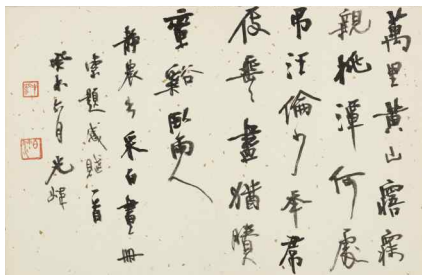 萬里黃山寤寐
親桃潭何處
吊汪倫少年席
夜齊盡猶賸
畫谿臥雨人
靜農之采白畫冊
索題感賦一首
癸未六月光煒